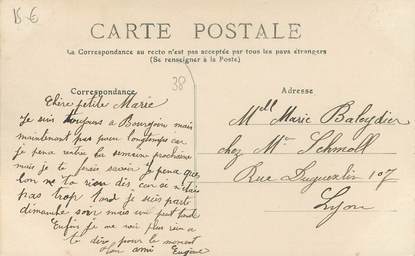 15 €
CARTE POSTALE
La Correspondance au recto n'est pas acceptée par tous les pays étrangers
(Se renseigner à la Poste)
38
Correspondance
Adresse
Chère petite Marie
Je suis toujours a Bourgoin mais
maintenant pas pour longtemps car
je pense rentré la semaine prochaine
mais je te ferais savoir je pense que
lon me vien dés car se n'etais
pas trop tard je suis parti
dimanche soir mais un peut tard
Enfin je ne voir plus rien a
te dire pour le moment
Ton ami Eugène
Mell Marie Baleydier
chez Mr Schmoll
Rue Duguesclin 107
Lyon